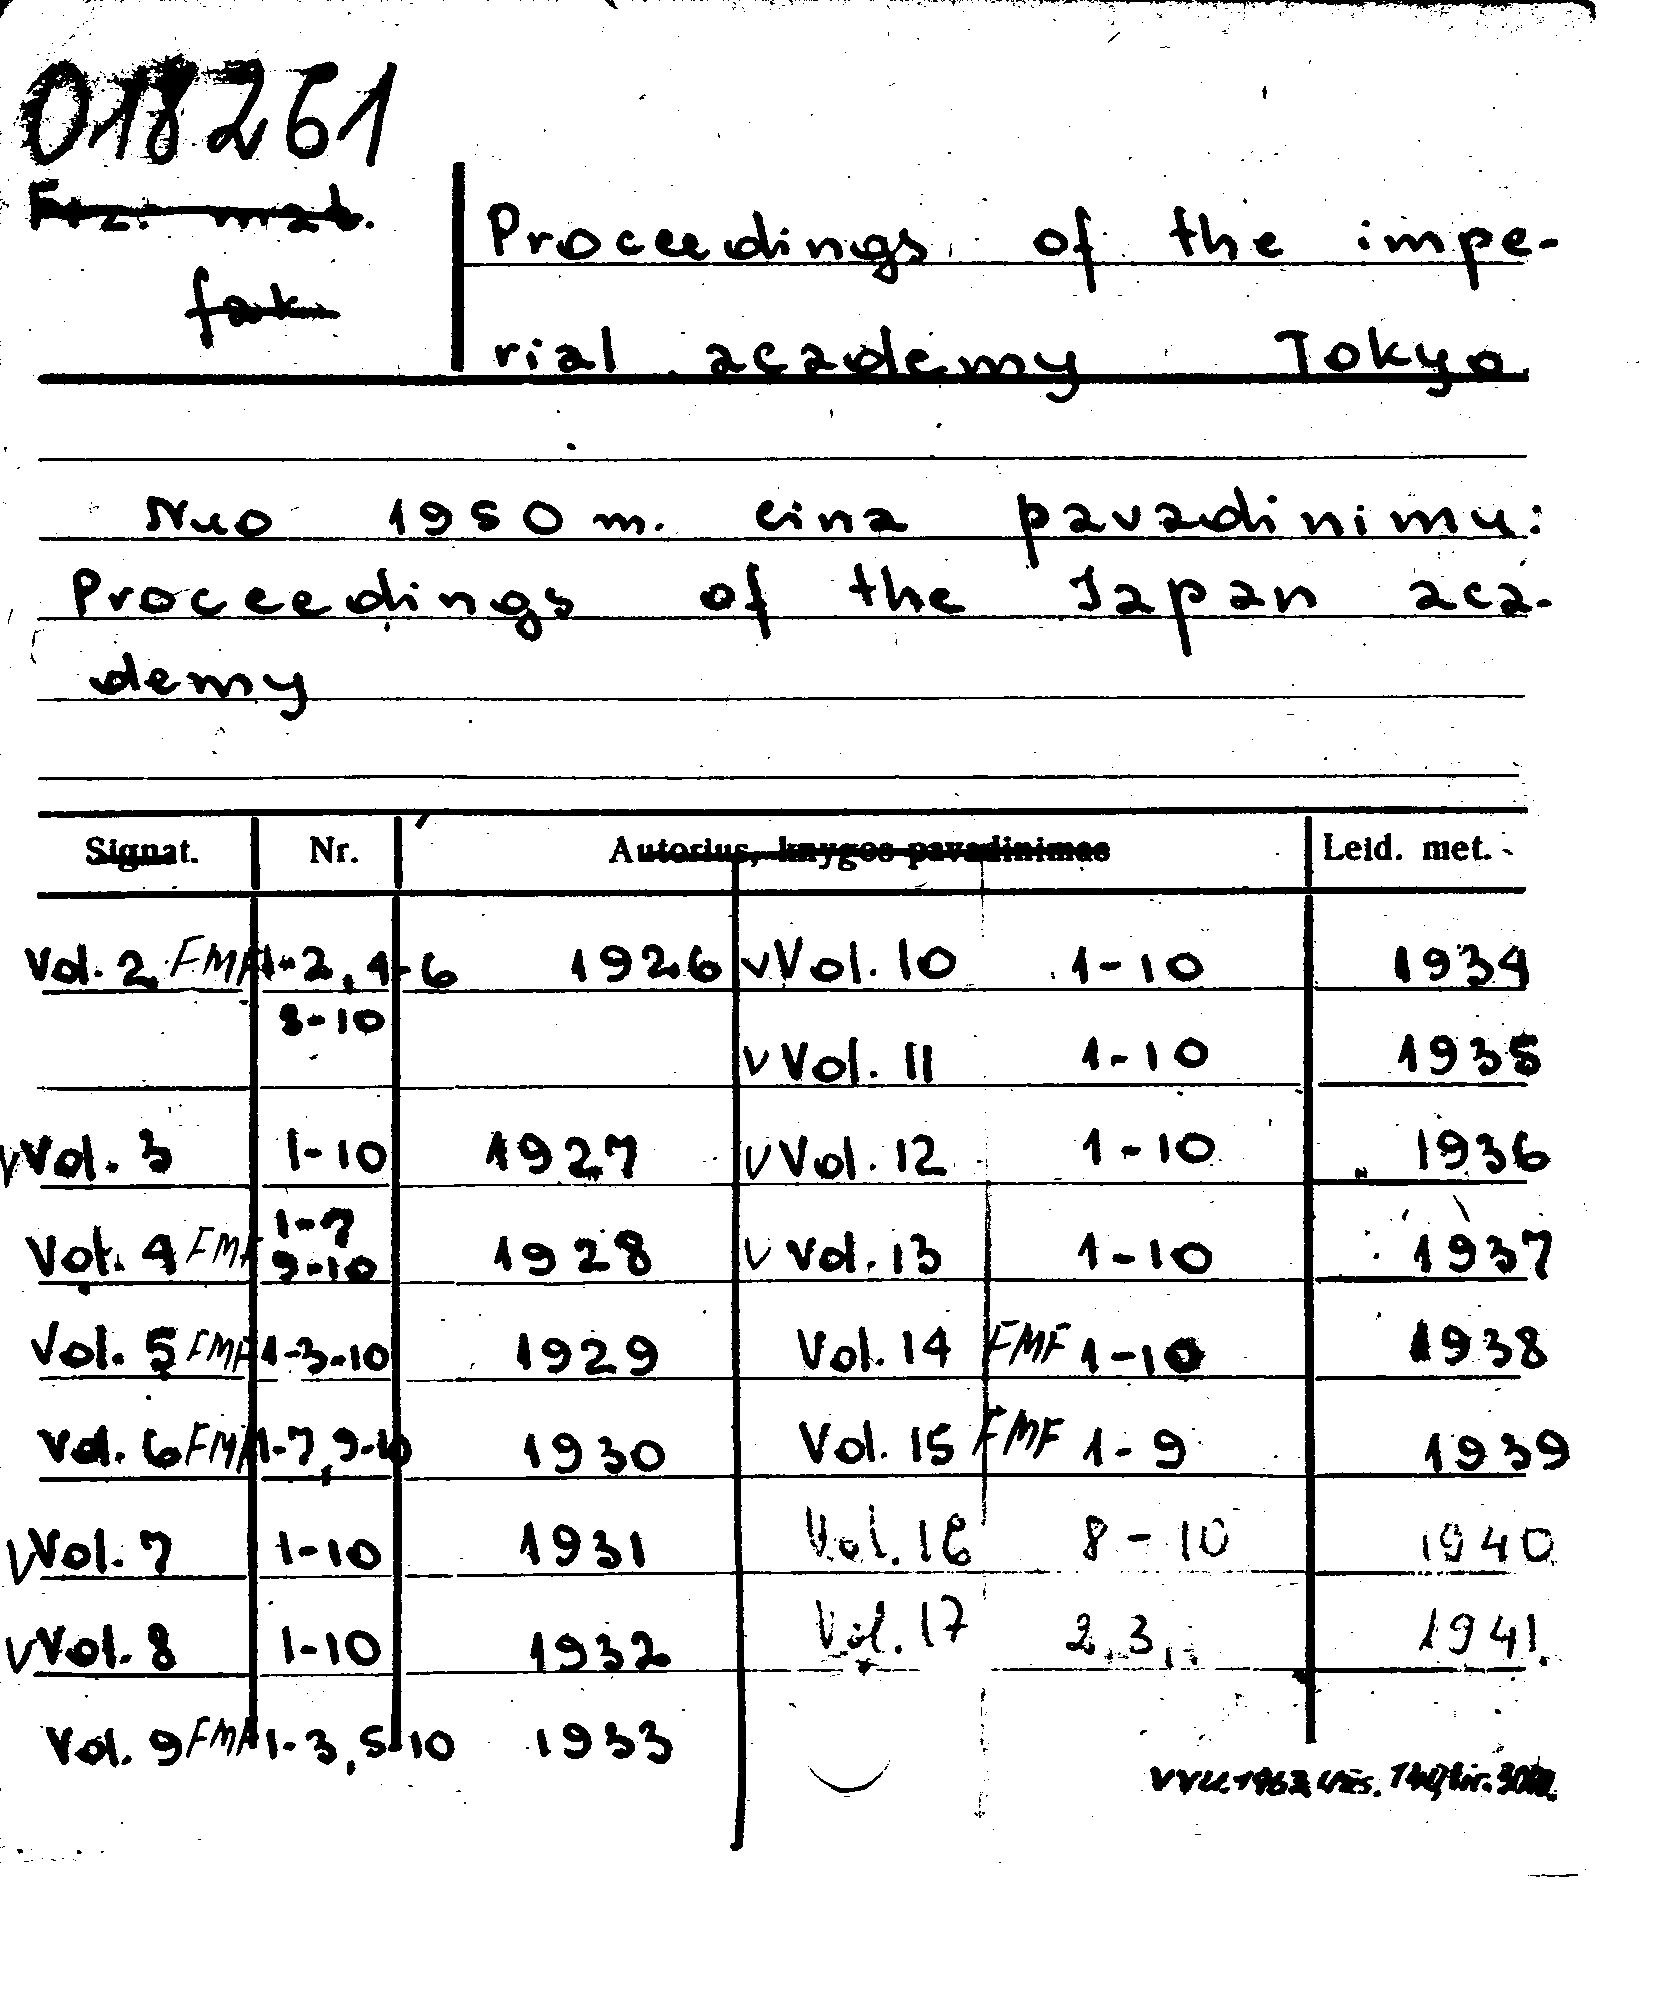 018261
Fiz. mat.
fak
Proceedings of the impe-
rial academy Tokyo.
Nuo 1950 m. eina pavadinimu:
Proceedings of the Japan aca-
demy
Signat. Nr. Autorius, knygos pavadinimas Leid. met.
Vol. 2 FMF 1-2, 4-6 1926 V Vol. 10 1-10 1934
8-10
V Vol. 11 1-10 1935
V Vol. 3 1-10 1927 V Vol. 12 1-10 1936
1-7
Vol. 4 FMF 9-10 1928 V Vol. 13 1-10 1937
Vol. 5 FMF 1-3-10 1929 Vol. 14 FMF 1-10 1938
Vol. 6 FMF 1-7, 9-10 1930 Vol. 15 FMF 1-9 1939
V Vol. 7 1-10 1931 Vol. 16 8-10 1940
V Vol. 8 1-10 1932 Vol. 17 2,3, 1941.
Vol. 9 FMF 1-3, 5-10 1933